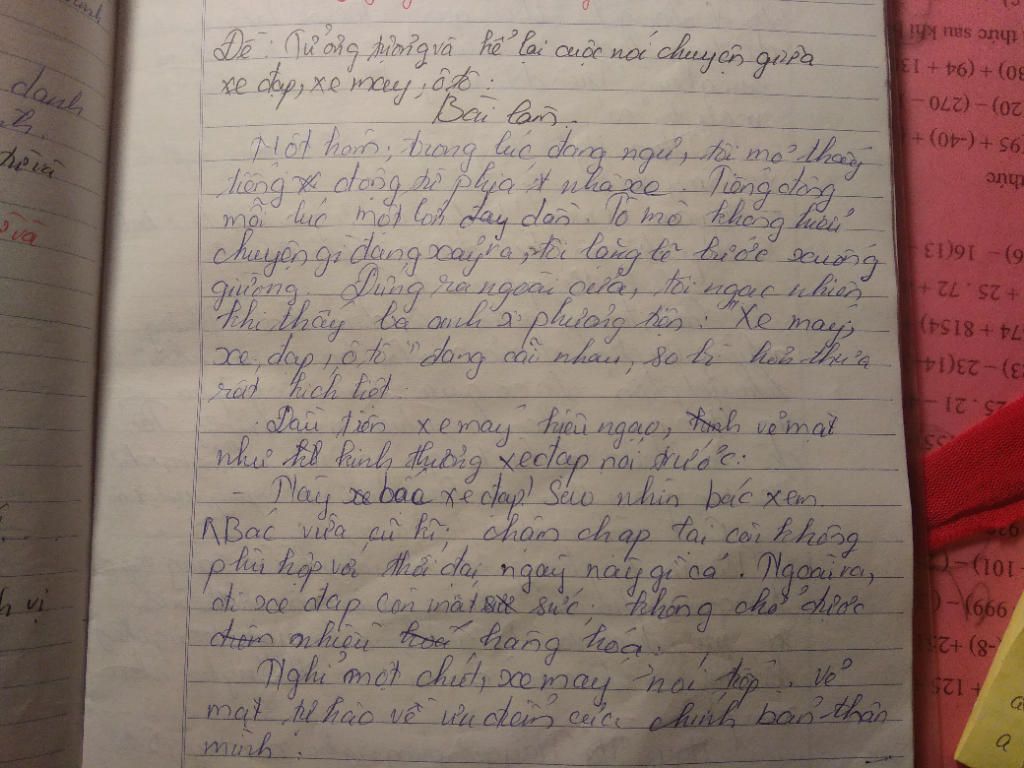 Đề: Tưởng tượng và kể lại cuộc nói chuyện giữa
xe đạp, xe máy, ô tô:
Bài làm.
Một hôm, trong lúc đang ngủ, tôi mở thấy
tiếng động từ phía nhà xe. Tiếng động
mỗi lúc một lớn dần. Tò mò không hiểu
chuyện gì đang xảy ra, tôi lặng lẽ bước xuống
giường. Đứng ra ngoài cửa, tôi ngạc nhiên
khi thấy ba anh phương tiện: "Xe máy,
xe đạp, ô tô" đang cãi nhau, so bì hơn thua
rất kịch liệt.
Đầu tiên xe máy kiêu ngạo, vẻ mặt
như khinh thường xe đạp nói trước:
- Này bác xe đạp! Sao nhìn bác xem.
Bác vừa cũ kĩ, chậm chạp lại còn không
phù hợp với thời đại ngày nay gì cả. Ngoài ra,
đi xe đạp còn mất sức, không chở được
nhiều hàng hoá.
Nghỉ một chút, xe máy nói tiếp. vẻ
mặt tự hào về ưu điểm của chính bản thân
mình.
thức sau khi
30) + (94 + 13
20) - (270 -
95 + (-40) +
thức
6) - 16(13
+ 25 . 72 +
74 + 8154)
3) - 23(14
25 . 21 -
-101) - (
999) - (
(-8) + 25
+ 125
danh
vị